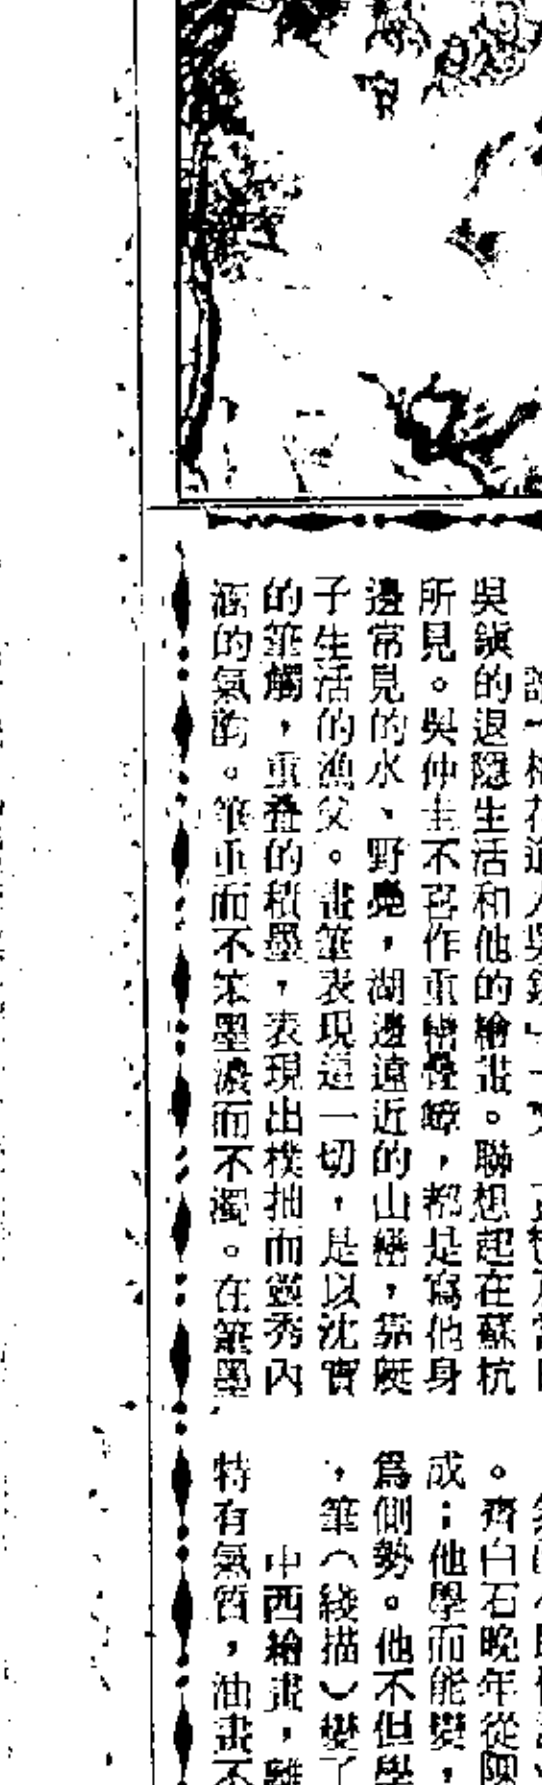 吳鎭的退隱生活和他的繪畫。聯想起在蘇杭
所見。吳仲圭不喜作重巒疊嶂，都是寫他身
邊常見的水、野鳧，湖邊遠近的山巒，靠艇
子生活的漁父。畫筆表現這一切，是以沈實
的筆觸，重叠的積墨，表現出樸拙而靈秀內
涵的氣韵。筆重而不笨墨濃而不濁。在筆墨
。齊白石晚年從陳
成；他學而能變，
爲側勢。他不但學
，筆（綫描）變了
中西繪畫，雖
特有氣質，油畫不